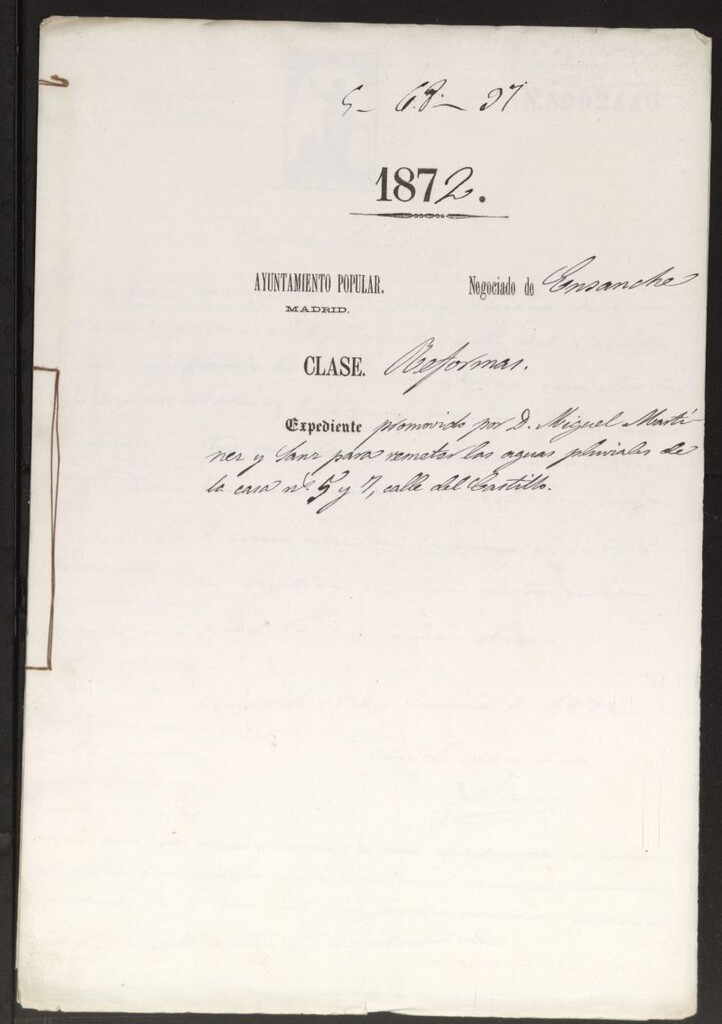 5- 68- 37
1872.
AYUNTAMIENTO POPULAR. Negociado de Ensanche
MADRID.
CLASE. Reformas.
Expediente promovido por D. Miguel Martí-
nez y Sanz para remeter las aguas pluviales de
la casa nº 5 y 7, calle del Castillo.